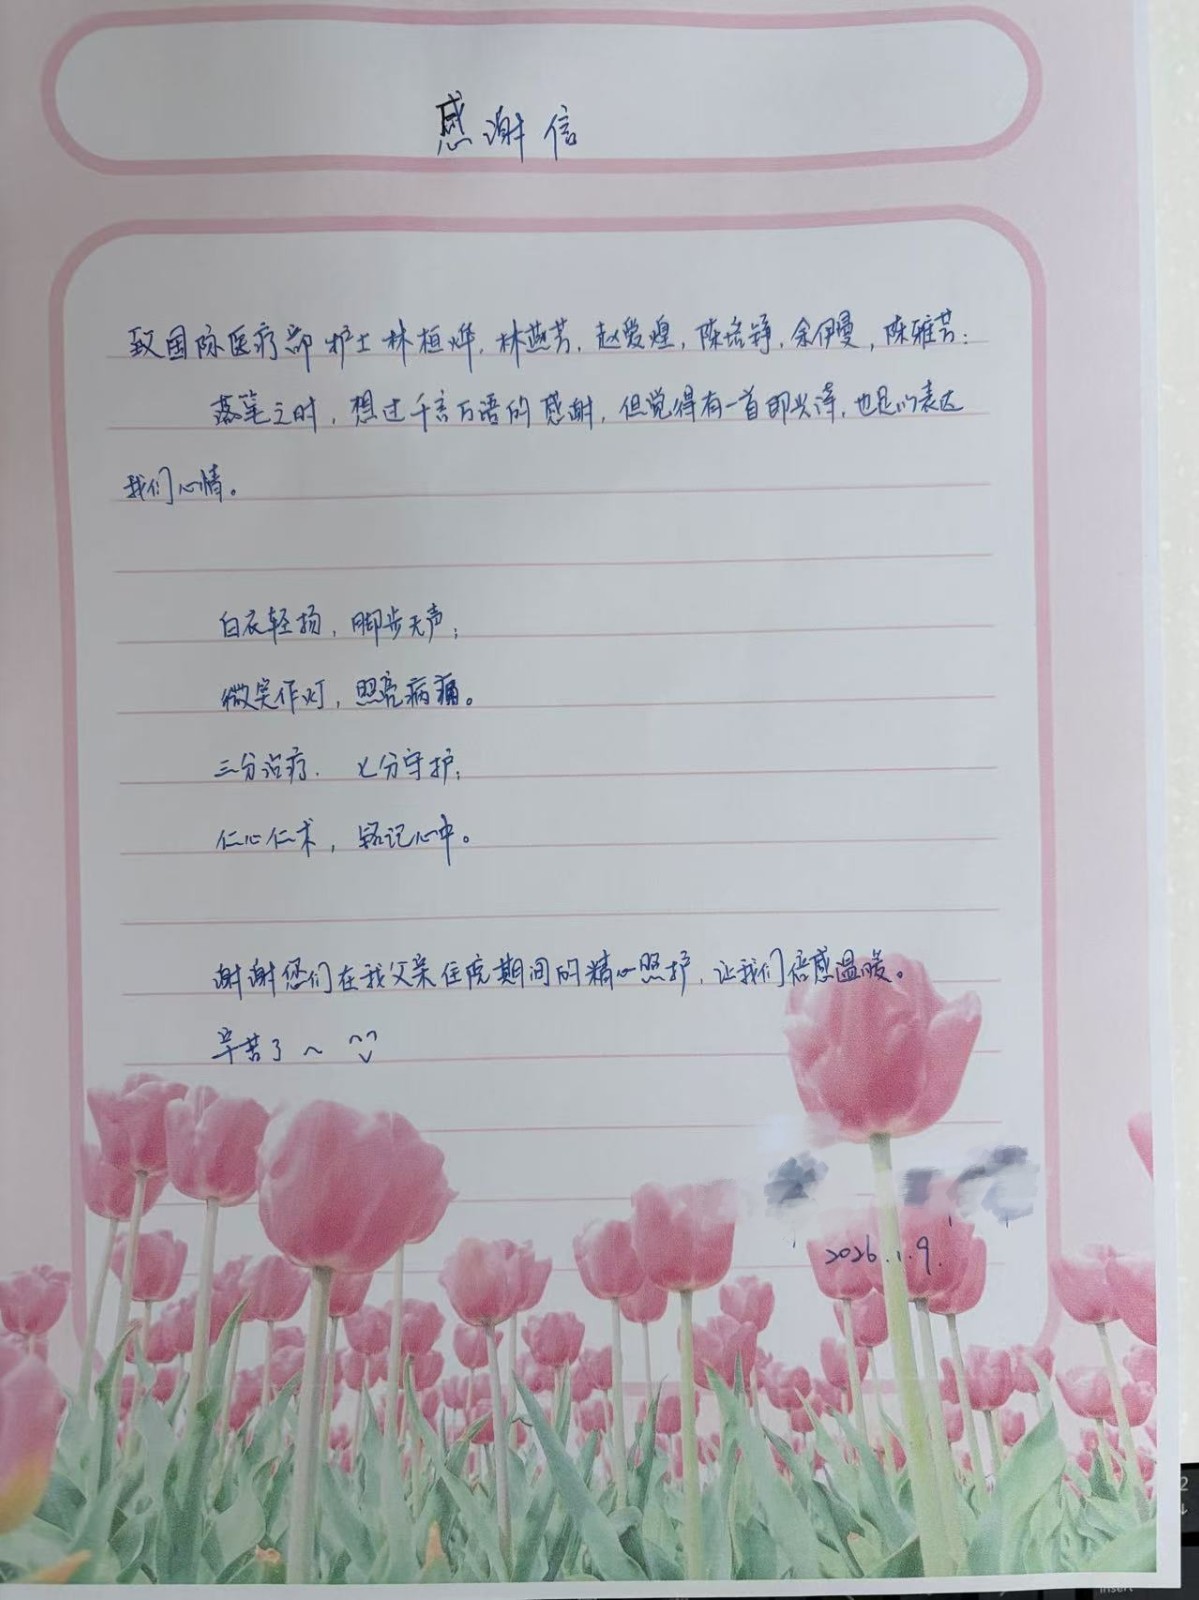 感谢信
致国际医疗部护士林桓烨,林燕芳,赵爱煌,陈培铮,余伊曼,陈雅芳:
落笔之时,想过千言万语的感谢,但觉得有一首即兴诗,也足以表达
我们心情。
白衣轻扬,脚步无声;
微笑作灯,照亮病痛。
三分治疗.七分守护;
仁心仁术,铭记心中。
谢谢您们在我父亲住院期间的精心照护,让我们倍感温暖。
辛苦了~
2026.1.9.